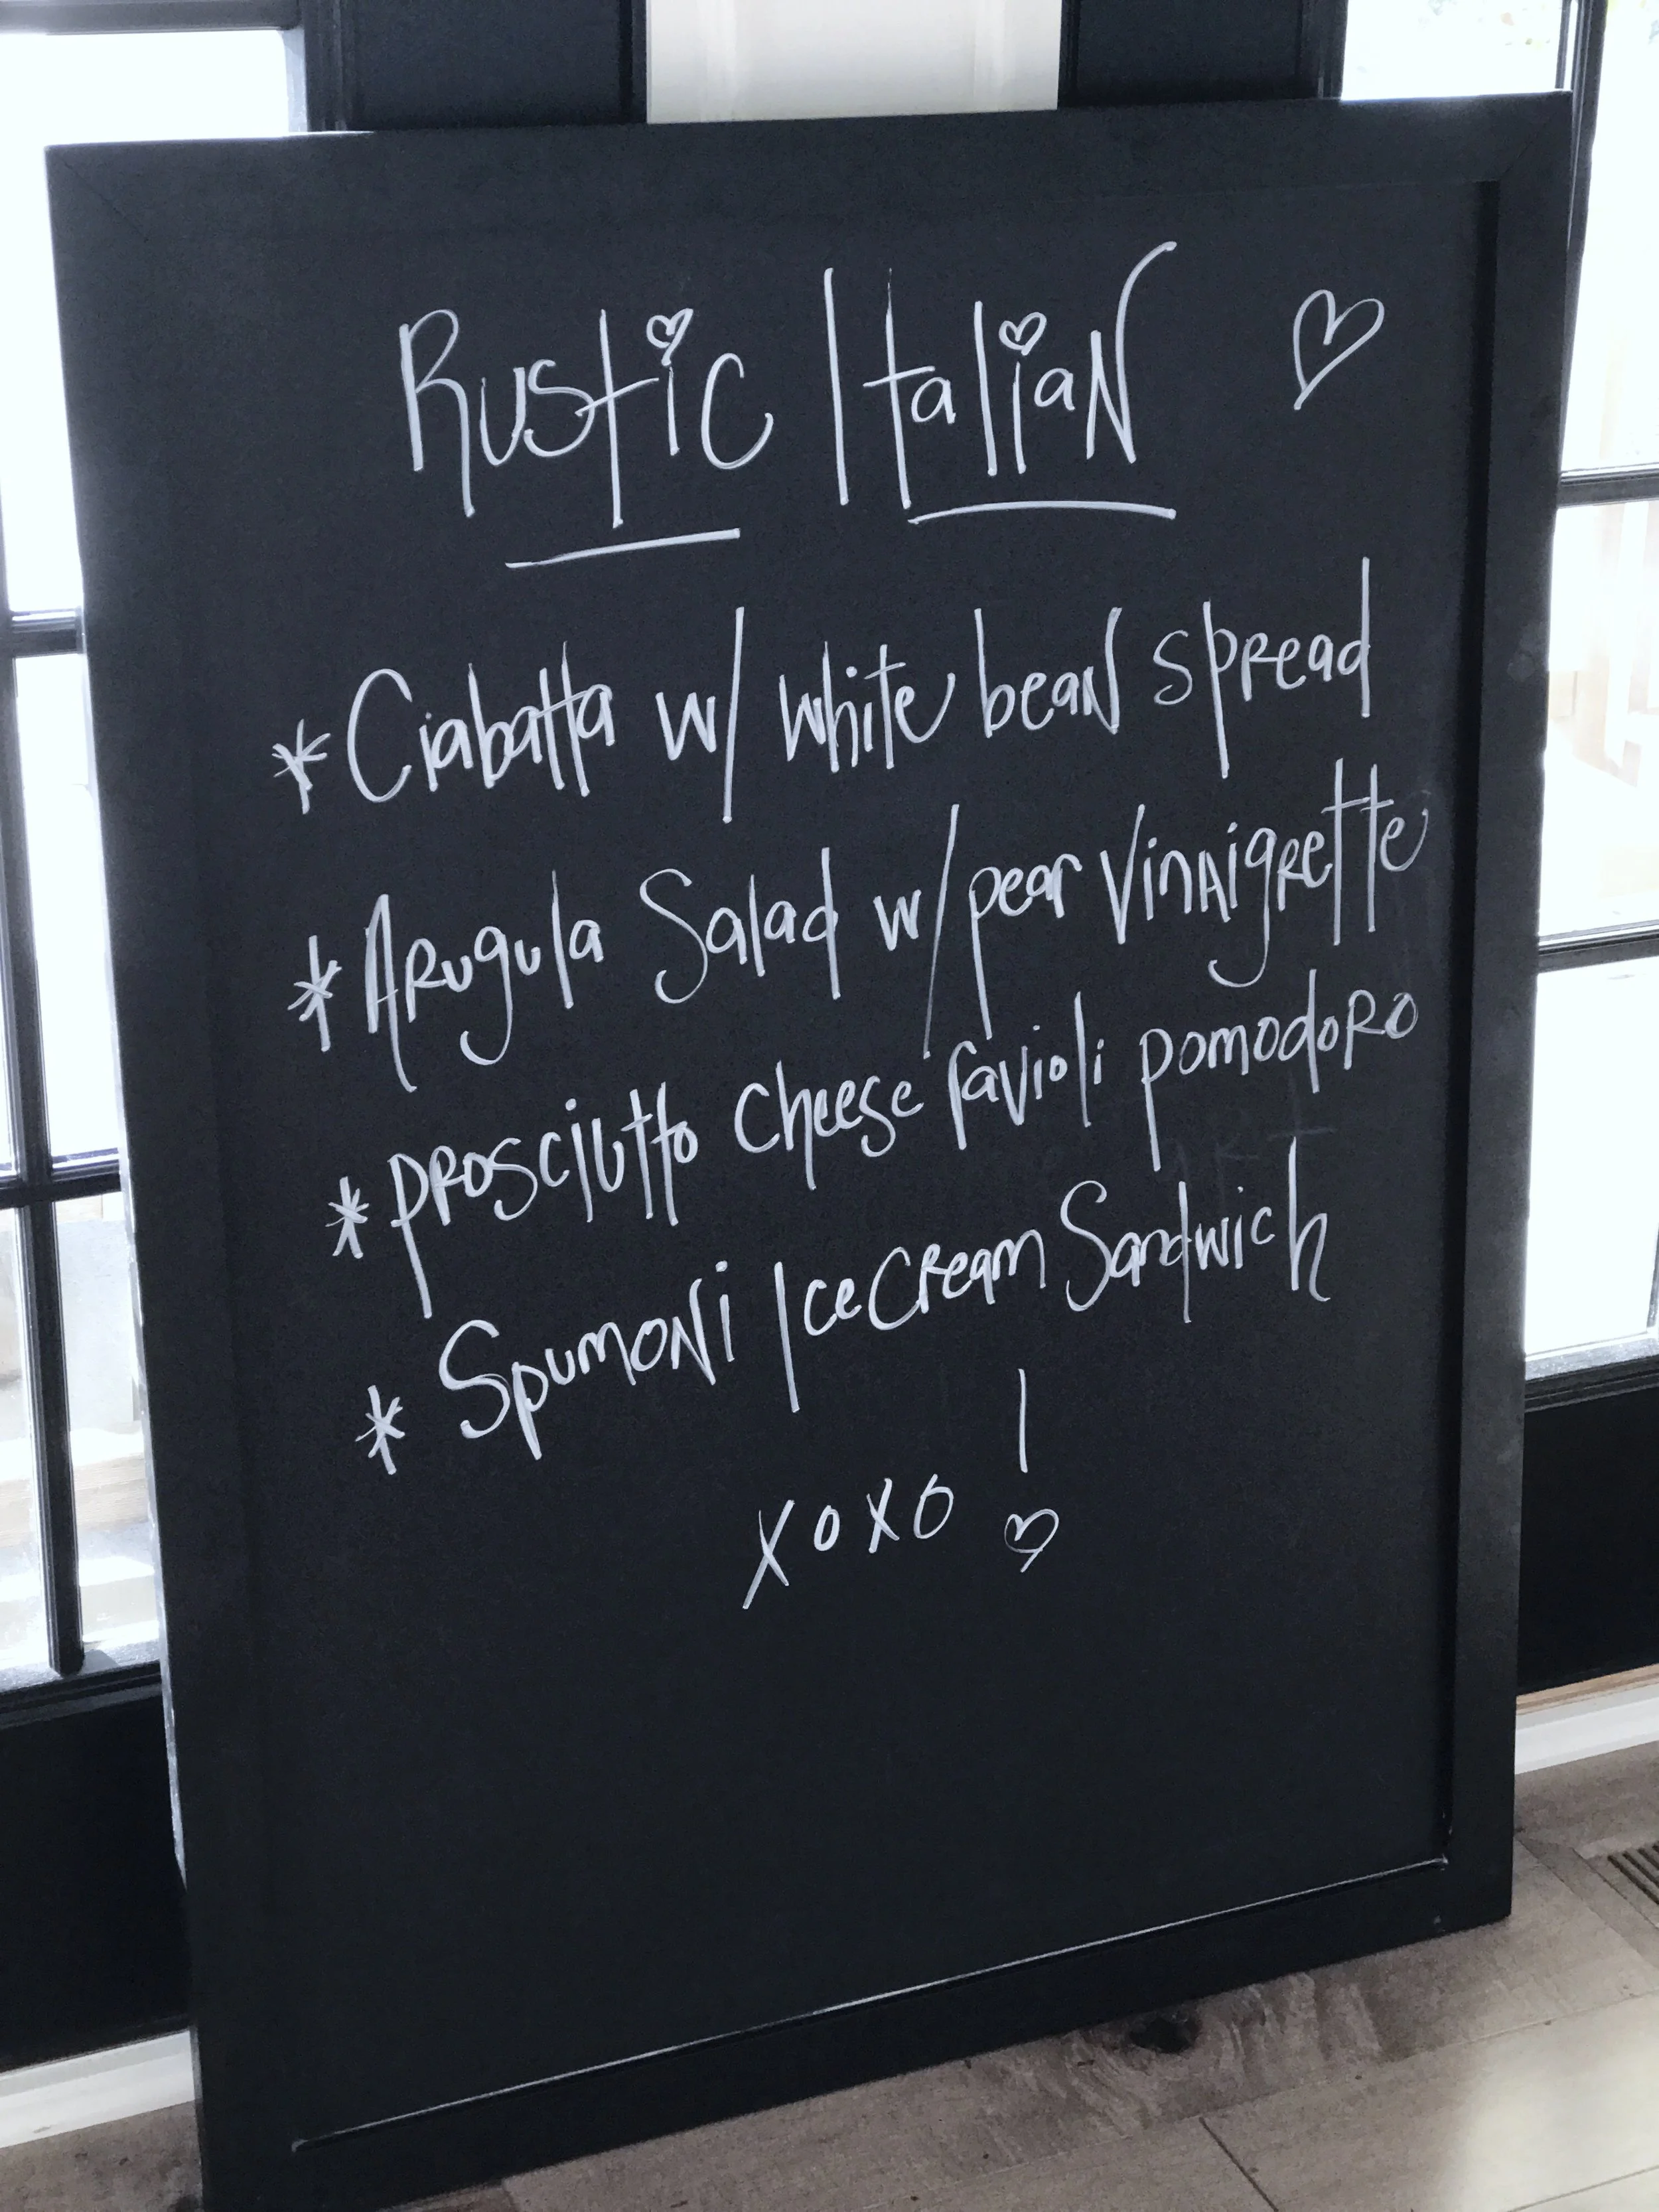 Rustic Italian ♡
* Ciabatta w/ white bean spread
* Arugula Salad w/ pear Vinaigrette
* prosciutto cheese ravioli pomodoro
* Spumoni Ice Cream Sandwich
xoxo !